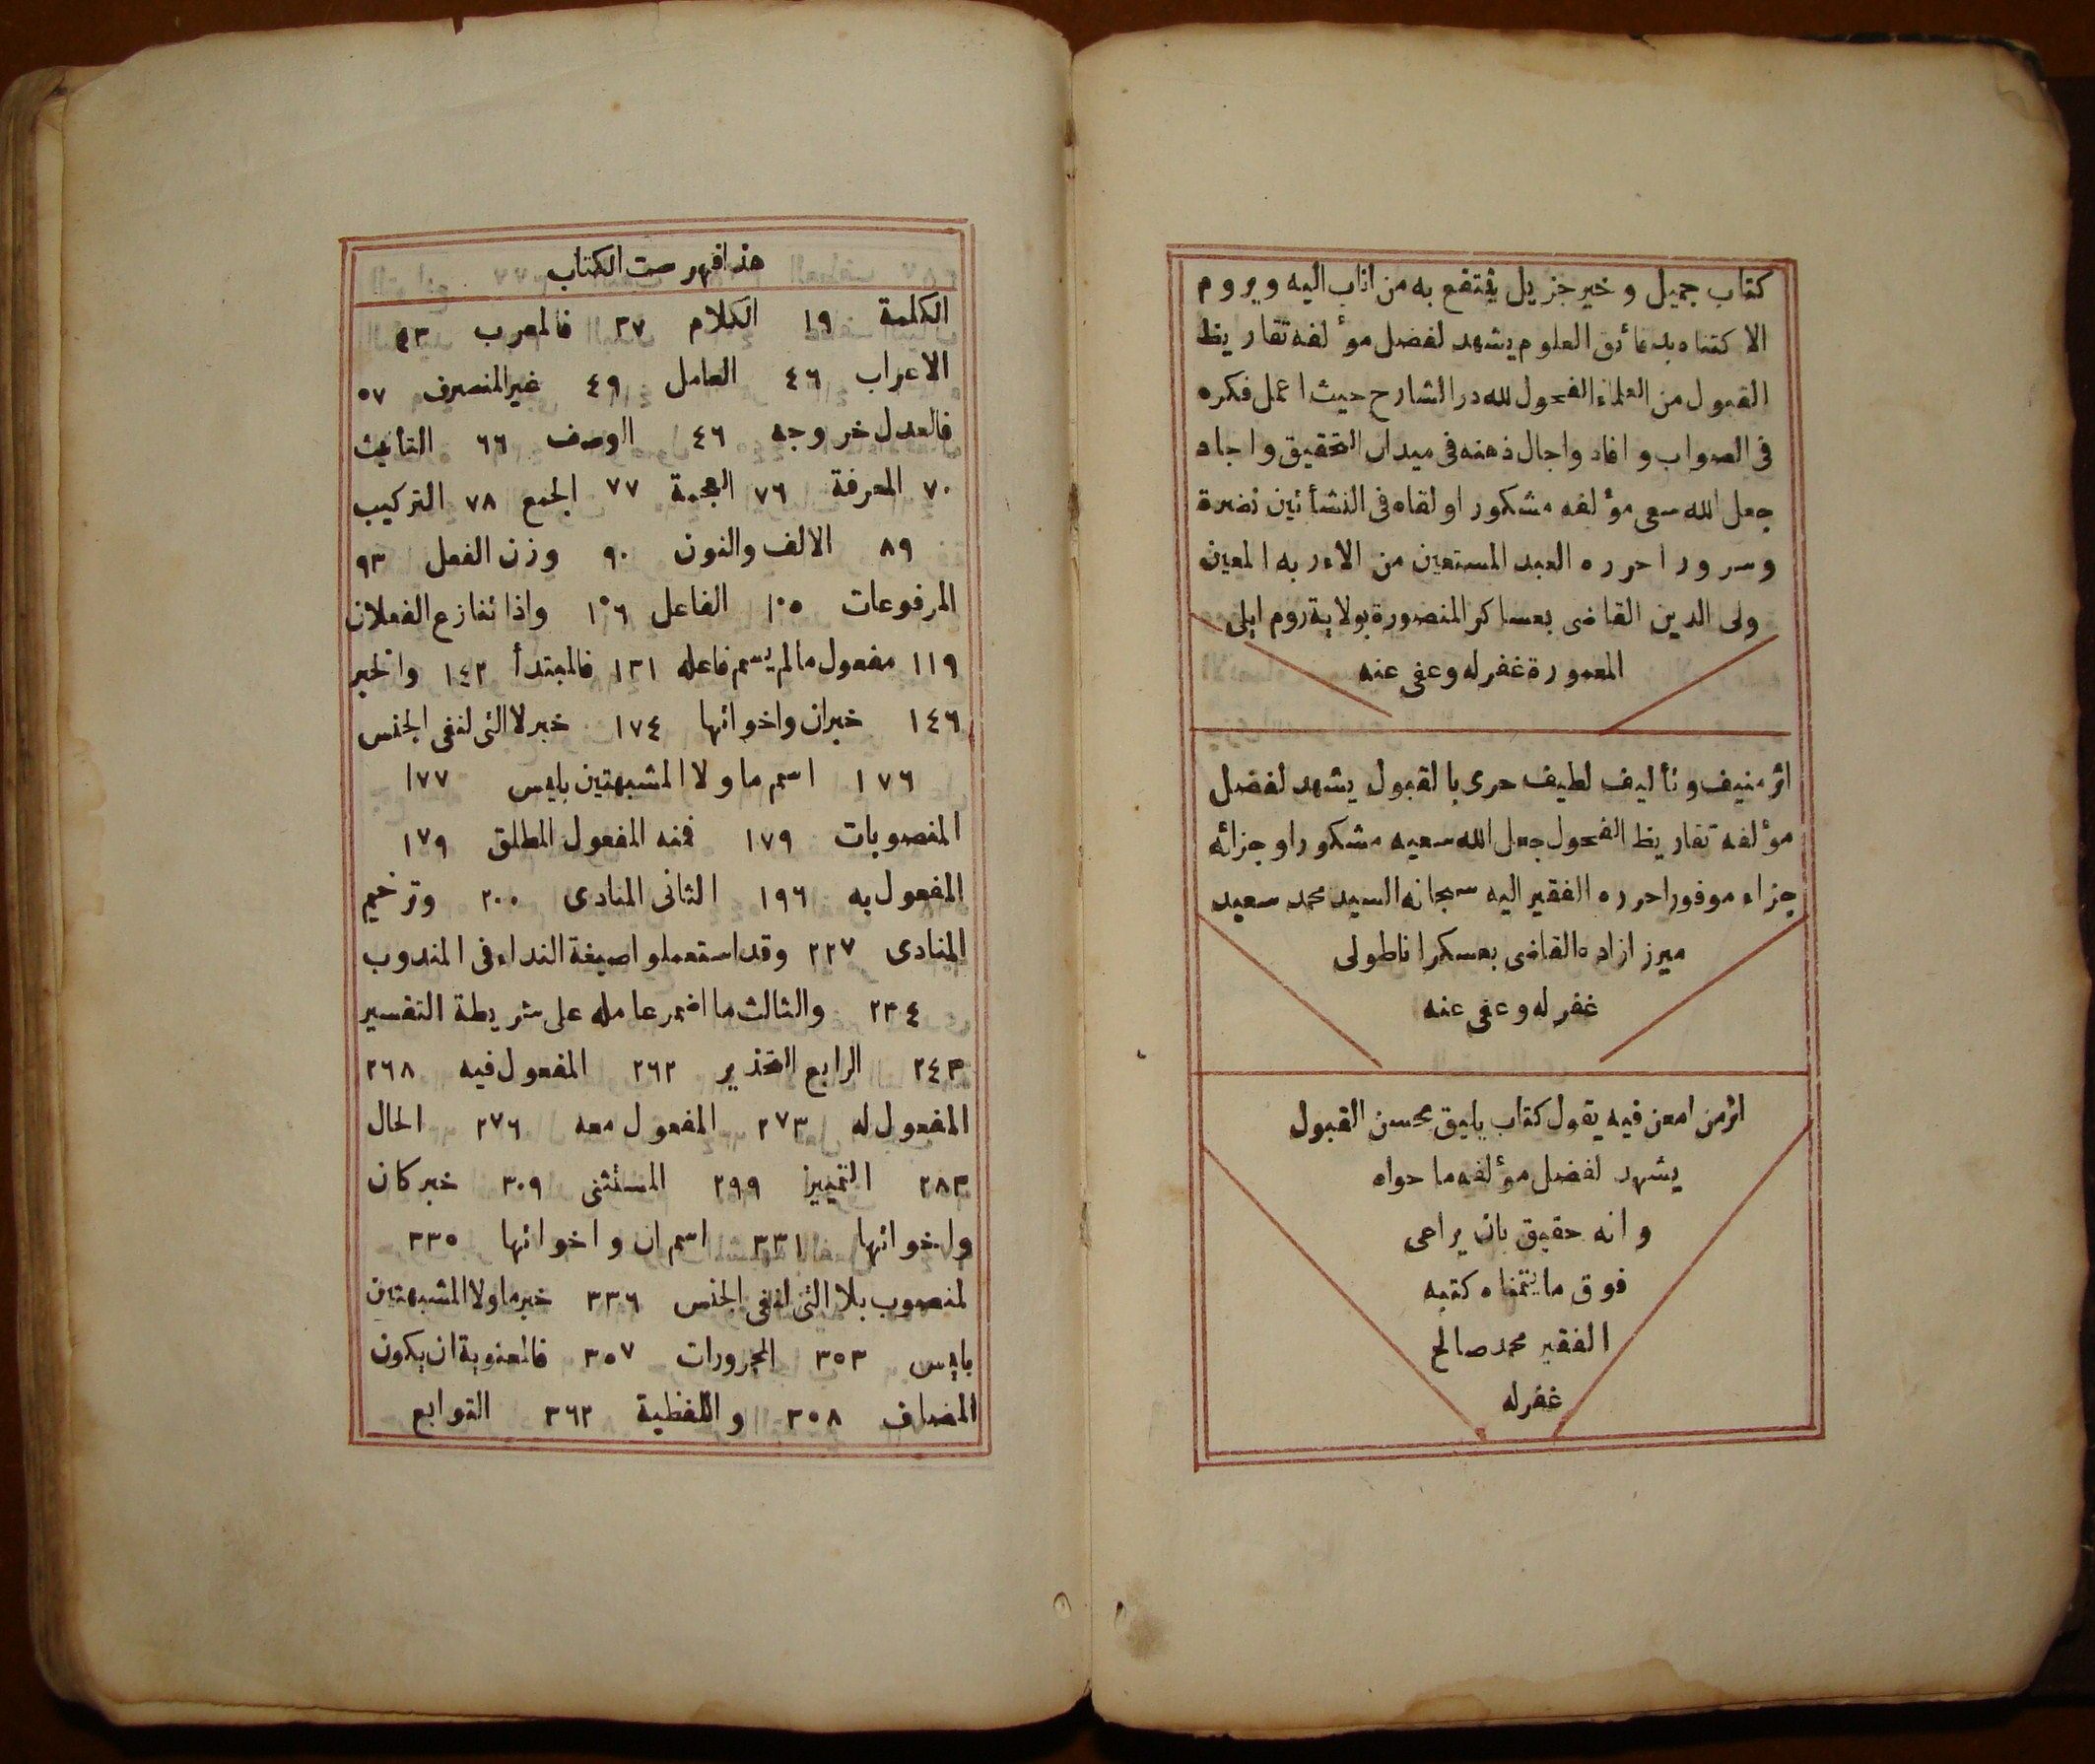 كتاب جميل و خير جزيل ينتفع به من اناب اليه ويروم
الاكتناه بدقائق العلوم يشهد لفضل مؤلفه تقاريظ
القبول من العلماء الفحول لله در الشارح حيث اعمل فكره
فى الصواب و افاد واجال ذهنه فى ميدان التحقيق واجاد
جعل الله سعى مؤلفه مشكورا ولقاه فى النشأتين نضرة
وسرورا حرره العبد المستعين من الامر به المعين
ولى الدين القاضى بعساكر المنصورة بولاية روم ايلى
المعمورة غفر له وعفى عنه
اثر منيف و تأليف لطيف حرى بالقبول يشهد لفضل
مؤلفه تقاريظ الفحول جعل الله سعيه مشكورا و جزائه
جزاء موفورا حرره الفقير اليه سبحانه السيد محمد سعيد
ميرزا زاده القاضى بعسكر اناطولى
غفر له و عفى عنه
اثر من امعن فيه يقول كتاب يليق بحسن القبول
يشهد لفضل مؤلفه ما حواه
و انه حقيق بان يراعى
فوق ما يتمناه كتبه
الفقير محمد صالح
غفر له
هذا فهرست الكتاب
الكلمة ١٩ الكلام ٣٧ فالمعرب ٤٣
الاعراب ٤٦ العامل ٤٩ غير المنصرف ٥٧
فالعدل خروجه ٤٦ الوصف ٦٦ التأنيث
٧٠ المعرفة ٧٦ العجمة ٧٧ الجمع ٧٨ التركيب
٨٩ الالف والنون ٩٠ وزن الفعل ٩٣
المرفوعات ١٠٥ الفاعل ١٠٦ واذا تنازع الفعلان
١١٩ مفعول مالم يسم فاعله ١٣١ فالمبتدأ ١٤٢ والخبر
١٤٦ خبران واخواتها ١٧٤ خبر لا التى لنفى الجنس
١٧٦ اسم ما ولا المشبهتين بليس ١٧٧
المنصوبات ١٧٩ فمنه المفعول المطلق ١٧٩
المفعول به ١٩٦ الثانى المنادى ٢٠٠ وترخيم
المنادى ٢٢٧ وقد استعملوا صيغة النداء فى المندوب
٢٣٤ والثالث ما اضمر عامله على شريطة التفسير
٢٤٣ الرابع التحذير ٢٦٢ المفعول فيه ٢٦٨
المفعول له ٢٧٣ المفعول معه ٢٧٦ الحال
٢٨٣ التمييز ٢٩٩ المستثنى ٣٠٩ خبر كان
واخواتها ٣٣١ اسم ان واخواتها ٣٣٥
لمنصوب بلا التى لنفى الجنس ٣٣٦ خبر ما ولا المشبهتين
بليس ٣٥٣ المجرورات ٣٥٧ فالمعنوية ان يكون
المضاف ٣٥٨ واللفظية ٣٦٢ التوابع